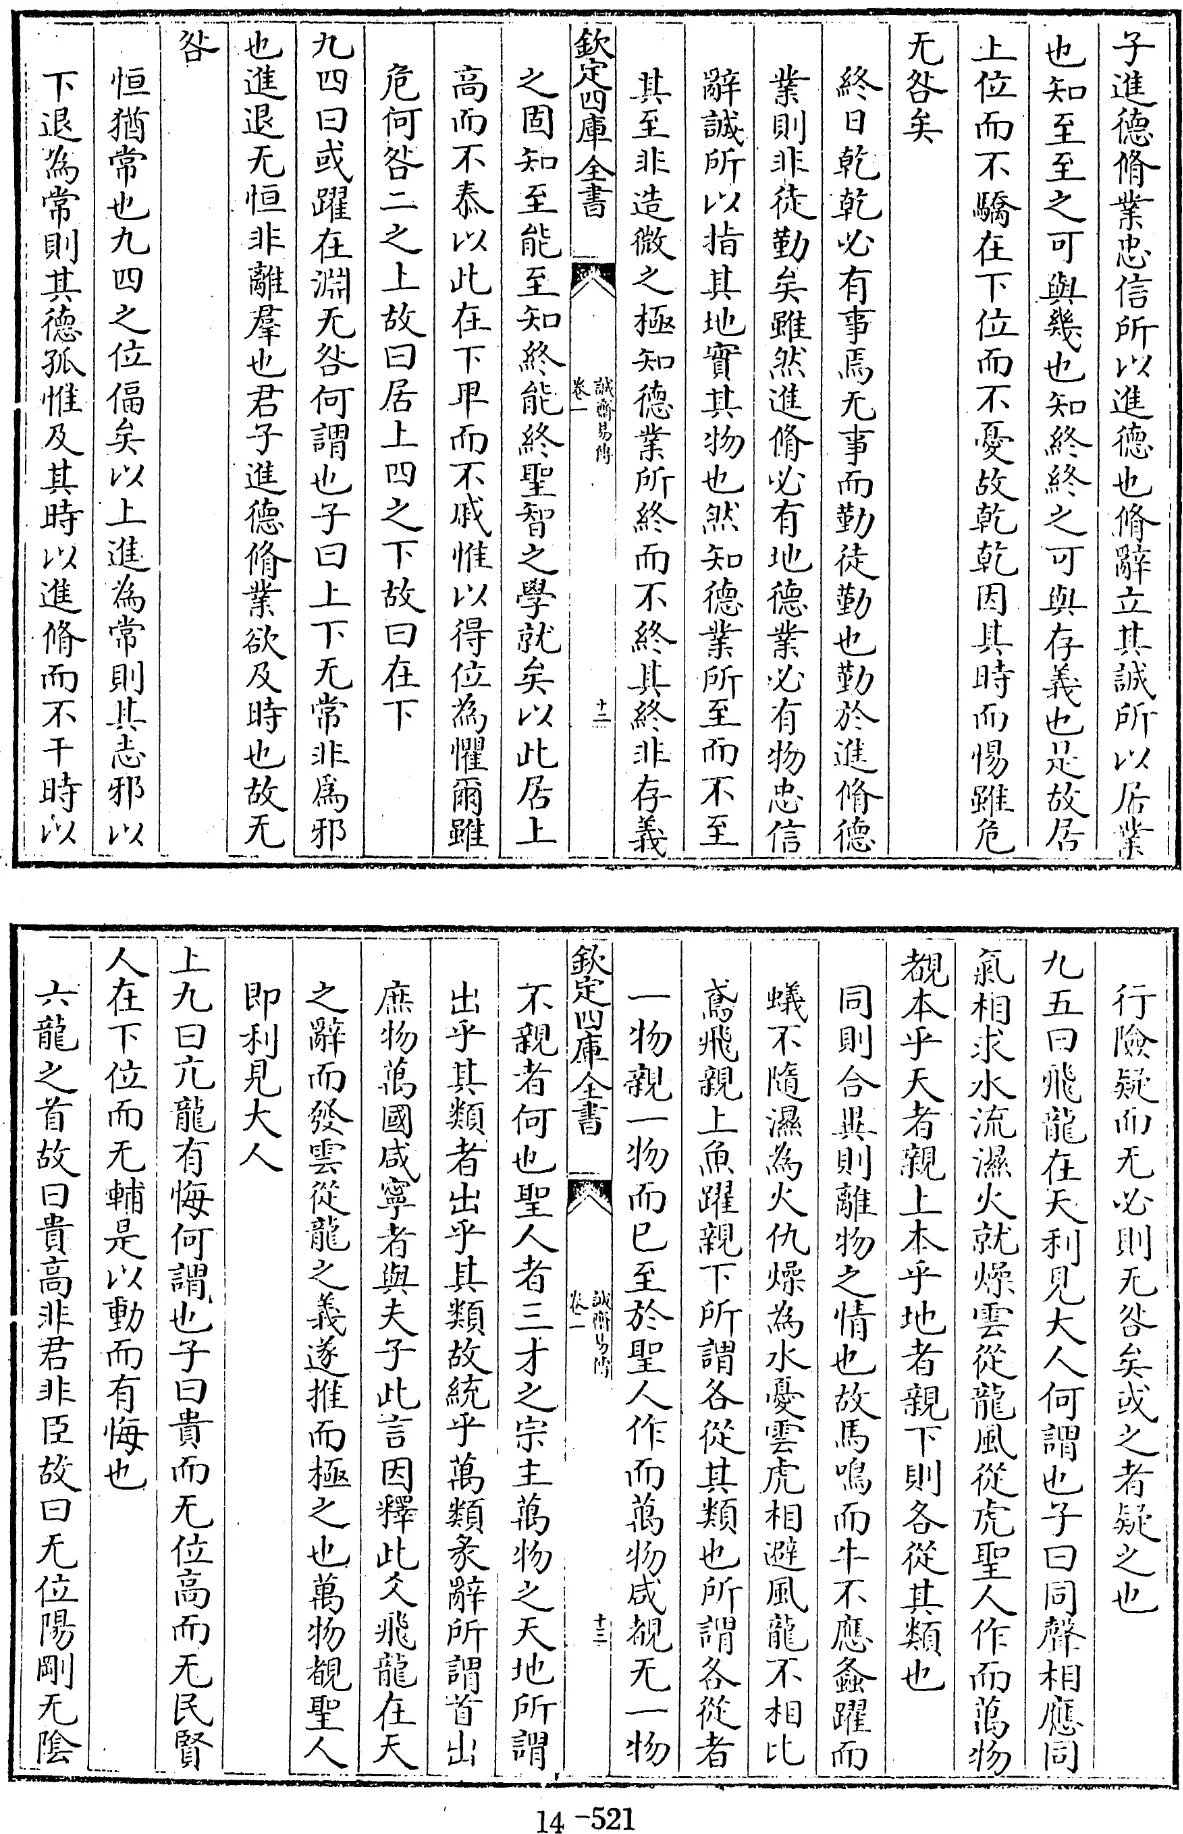 子進德脩業忠信所以進德也脩辭立其誠所以居業
也知至至之可與幾也知終終之可與存義也是故居
上位而不驕在下位而不憂故乾乾因其時而惕雖危
无咎矣
終日乾乾必有事焉无事而勤徒勤也勤於進脩德
業則非徒勤矣雖然進脩必有地德業必有物忠信
辭誠所以指其地實其物也然知德業所至而不至
其至非造微之極知德業所終而不終其終非存義
欽定四庫全書
誠齋易傳
卷一
十二
之固知至能至知終能終聖智之學就矣以此居上
高而不泰以此在下卑而不戚惟以得位為懼爾雖
危何咎二之上故曰居上四之下故曰在下
九四曰或躍在淵无咎何謂也子曰上下无常非爲邪
也進退无恒非離羣也君子進德脩業欲及時也故无
咎
恒猶常也九四之位偪矣以上進為常則其志邪以
下退為常則其德孤惟及其時以進脩而不干時以
行險疑而无必則无咎矣或之者疑之也
九五曰飛龍在天利見大人何謂也子曰同聲相應同
氣相求水流濕火就燥雲從龍風從虎聖人作而萬物
覩本乎天者親上本乎地者親下則各從其類也
同則合異則離物之情也故馬鳴而牛不應螽躍而
蟻不隨濕為火仇燥為水憂雲虎相避風龍不相比
鳶飛親上魚躍親下所謂各從其類也所謂各從者
一物親一物而已至於聖人作而萬物咸覩无一物
欽定四庫全書
誠齋易傳
卷一
十三
不親者何也聖人者三才之宗主萬物之天地所謂
出乎其類者出乎其類故統乎萬類彖辭所謂首出
庶物萬國咸寧者與夫子此言因釋此爻飛龍在天
之辭而發雲從龍之義遂推而極之也萬物覩聖人
即利見大人
上九曰亢龍有悔何謂也子曰貴而无位高而无民賢
人在下位而无輔是以動而有悔也
六龍之首故曰貴高非君非臣故曰无位陽剛无陰
14-521